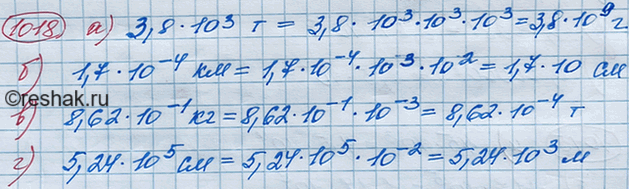 1018 а) 3,8·10³ т = 3,8·10³·10³·10³=3,8·10⁹ г
б) 1,7·10⁻⁴ км = 1,7·10⁻⁴·10⁻³·10⁻² = 1,7·10 см
©reshak.ru
в) 8,62·10⁻¹ кг = 8,62·10⁻¹·10⁻³ = 8,62·10⁻⁴ т
г) 5,24·10⁵ см = 5,24·10⁵·10⁻² = 5,24·10³ м